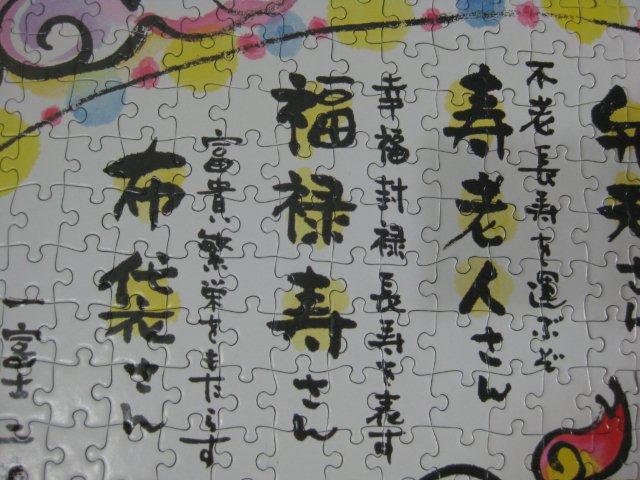 弁天さん
不老長寿を運ぶぞ
寿老人さん
幸福封禄長寿を表す
福禄寿さん
富貴繁栄をもたらす
布袋さん
一富士